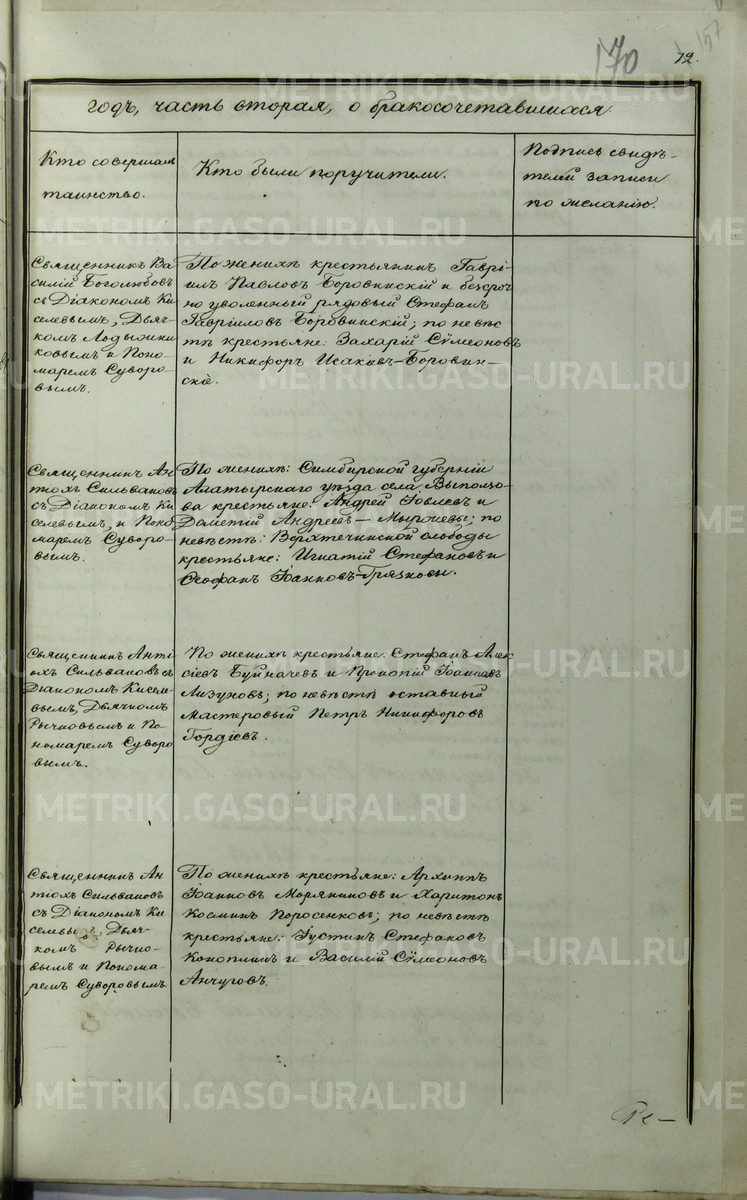 170
157
12.
годъ, часть вторая, о бракосочетавшихся.
Кто совершалъ
таинство.
Кто были поручители.
Подпись свидѣ-
телей записи
по желанію.
Священникъ Ва
силій Боголюбовъ
съ Діакономъ Ки
селевымъ, Дьяч-
комъ Лодыжни
ковымъ и Поно-
маремъ Суворо-
вымъ.
По женихѣ крестьянинъ Гаврі-
илъ Павловъ Боровинскій и безсроч
но уволенный рядовый Стефанъ
Гавріиловъ Боровинскій; по невѣс
тѣ крестьяне: Захарій Сѵмеоновъ
и Никифоръ Исаковъ-Боровин-
скіе.
Священникъ Ан
тіохъ Сильвановъ
съ Діакономъ Ки
селевымъ, и Поно
маремъ Суворо-
вымъ.
По женихѣ: Симбирской губерніи
Алатырскаго уѣзда села Выползо-
ва крестьяне: Андрей Іовлевъ и
Далетій Андреевъ—Мыржевы; по
невѣстѣ: Верхтечинской слободы
крестьяне: Игнатій Стефановъ и
Ѳеофанъ Іоанновъ-Грязновы.
Священникъ Анті
охъ Сильвановъ съ
Діакономъ Кисел-
вымъ, Дьячкомъ
Рычковымъ и По
номаремъ Суворо
вымъ.
По женихѣ крестьяне: Стефанъ Алек
сіевъ Буйначевъ и Прокопій Іоанновъ
Лизуновъ; по невѣстѣ отставный
Мастеровый Петръ Никифоровъ
Гордіевъ.
Священникъ Ан
тіохъ Сильвановъ
съ Діакономъ Ки
селевымъ, Дьяч-
комъ Рычко-
вымъ и Понома-
ремъ Суворовымъ
По женихѣ крестьяне: Архиппъ
Іоанновъ Моряниновъ и Харитонъ
Космінъ Поросенковъ; по невѣстѣ
крестьяне: Іустинъ Стефановъ
Коноплинъ и Василій Сѵмеоновъ
Анчуговъ.
METRIKI.GASO-URAL.RU